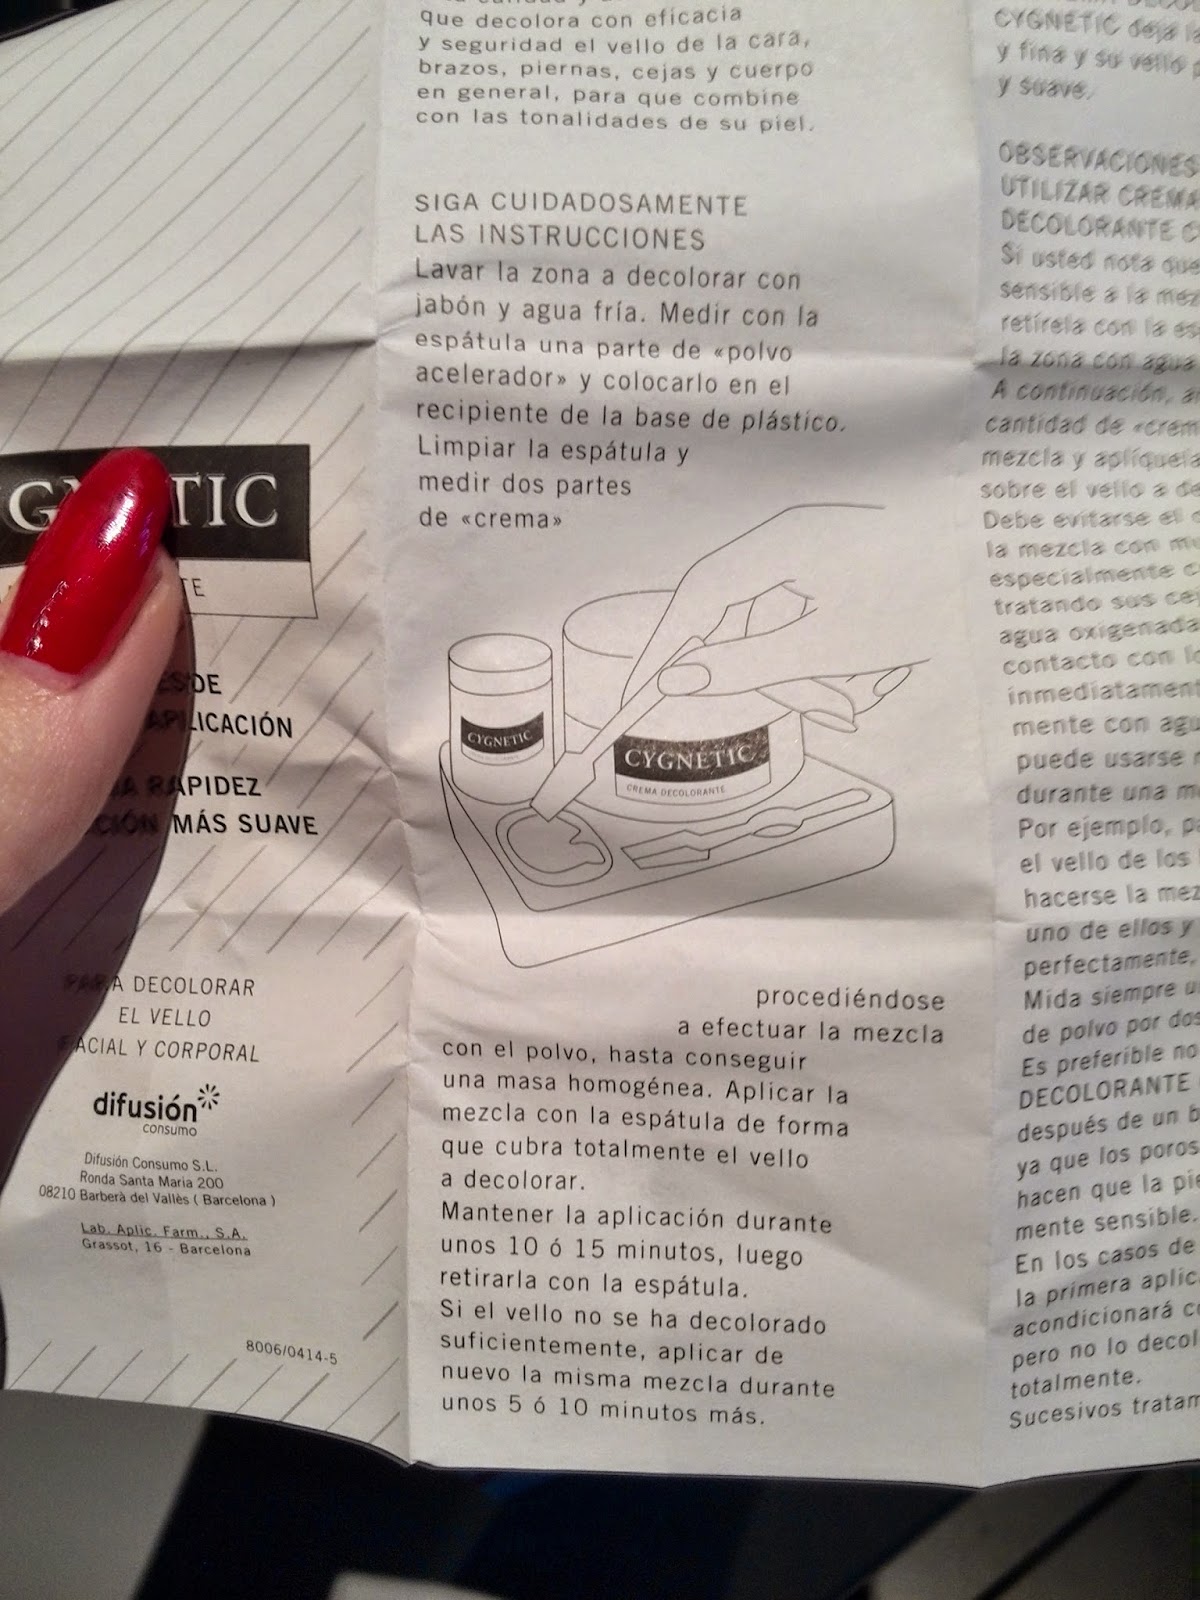 CYGNETIC
TE
DE
APLICACIÓN
RAPIDEZ
CIÓN MÁS SUAVE
PARA DECOLORAR
EL VELLO
FACIAL Y CORPORAL
difusión
consumo
Difusión Consumo S.L.
Ronda Santa Maria 200
08210 Barberà del Vallès ( Barcelona )
Lab. Aplic. Farm., S.A.
Grassot, 16 - Barcelona
8006/0414-5
que decolora con eficacia
y seguridad el vello de la cara,
brazos, piernas, cejas y cuerpo
en general, para que combine
con las tonalidades de su piel.
SIGA CUIDADOSAMENTE
LAS INSTRUCCIONES
Lavar la zona a decolorar con
jabón y agua fría. Medir con la
espátula una parte de «polvo
acelerador» y colocarlo en el
recipiente de la base de plástico.
Limpiar la espátula y
medir dos partes
de «crema»
CYGNETIC
CYGNETIC
CREMA DECOLORANTE
procediéndose
a efectuar la mezcla
con el polvo, hasta conseguir
una masa homogénea. Aplicar la
mezcla con la espátula de forma
que cubra totalmente el vello
a decolorar.
Mantener la aplicación durante
unos 10 ó 15 minutos, luego
retirarla con la espátula.
Si el vello no se ha decolorado
suficientemente, aplicar de
nuevo la misma mezcla durante
unos 5 ó 10 minutos más.
CYGNETIC deja la
y fina y su vello
y suave.
OBSERVACIONES
UTILIZAR CREMA
DECOLORANTE C
Si usted nota que
sensible a la mez
retírela con la es
la zona con agua
A continuación, a
cantidad de «crem
mezcla y aplíquela
sobre el vello a de
Debe evitarse el c
la mezcla con mu
especialmente c
tratando sus cej
agua oxigenada
contacto con lo
inmediatament
mente con agu
puede usarse
durante una m
Por ejemplo, pa
el vello de los
hacerse la mez
uno de ellos y
perfectamente.
Mida siempre u
de polvo por dos
Es preferible no
DECOLORANTE
después de un b
ya que los poros
hacen que la pie
mente sensible.
En los casos de
la primera aplic
acondicionará c
pero no lo decol
totalmente.
Sucesivos tratam